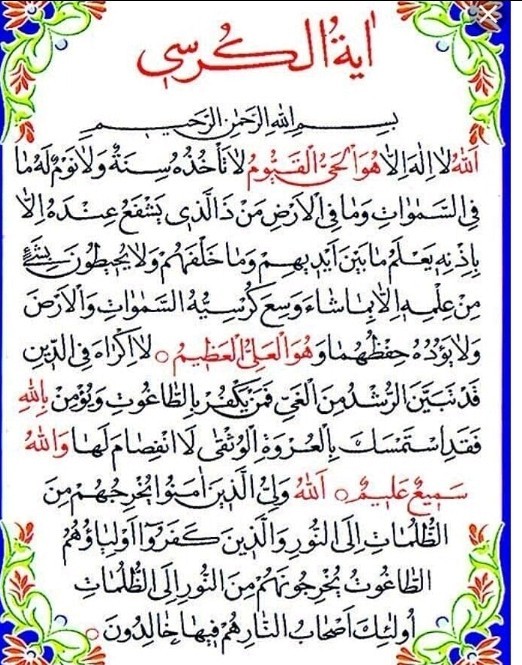 اٰيةُ الكُرسي
بِسْمِ اللهِ الرَّحْمٰنِ الرَّحَيمِ
اَللهُ لَا اِلٰهَ اِلَّا هُوَ الْحَيُّ الْقَيُّومُ لَا تَأْخُذُهُ سِنَةٌ وَلَا نَوْمٌ لَهُ مَا
فِي السَّمٰوَاتِ وَمَا فِي الْاَرْضِ مَنْ ذَا الَّذِي يَشْفَعُ عِنْدَهُ اِلَّا
بِاِذْنِهِ يَعْلَمُ مَا بَيْنَ اَيْدِيهِمْ وَمَا خَلْفَهُمْ وَلَا يُحِيطُونَ بِشَيْءٍ
مِنْ عِلْمِهِ اِلَّا بِمَا شَاءَ وَسِعَ كُرْسِيُّهُ السَّمٰوَاتِ وَالْاَرْضَ
وَلَا يَؤُدُهُ حِفْظُهُمَا وَهُوَ الْعَلِيُّ الْعَظِيمُ ○ لَا اِكْرَاهَ فِي الدِّينِ
قَدْ تَبَيَّنَ الرُّشْدُ مِنَ الْغَيِّ فَمَنْ يَكْفُرْ بِالطَّاغُوتِ وَيُؤْمِنْ بِاللهِ
فَقَدِ اسْتَمْسَكَ بِالْعُرْوَةِ الْوُثْقٰى لَا انْفِصَامَ لَهَا وَاللهُ
سَمِيعٌ عَلِيمٌ ○ اَللهُ وَلِيُّ الَّذِينَ اٰمَنُوا يُخْرِجُهُمْ مِنَ
الظُّلُمَاتِ اِلَى النُّورِ وَالَّذِينَ كَفَرُوا اَوْلِيَاؤُهُمُ
الطَّاغُوتُ يُخْرِجُونَهُمْ مِنَ النُّورِ اِلَى الظُّلُمَاتِ
اُولٰئِكَ اَصْحَابُ النَّارِ هُمْ فِيهَا خَالِدُونَ ○